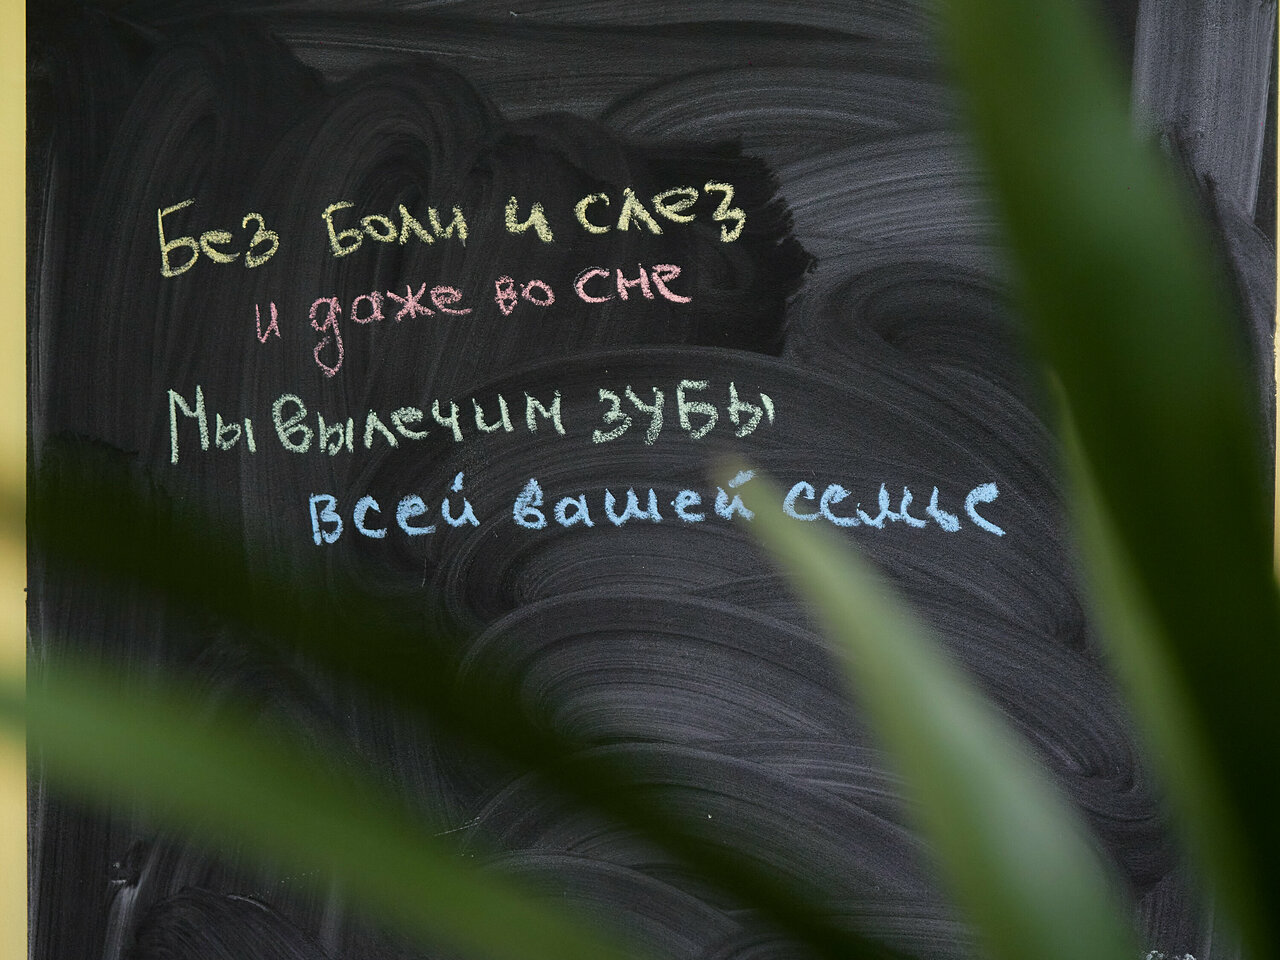 Без боли и слез
и даже во сне
Мы вылечим зубы
всей вашей семье